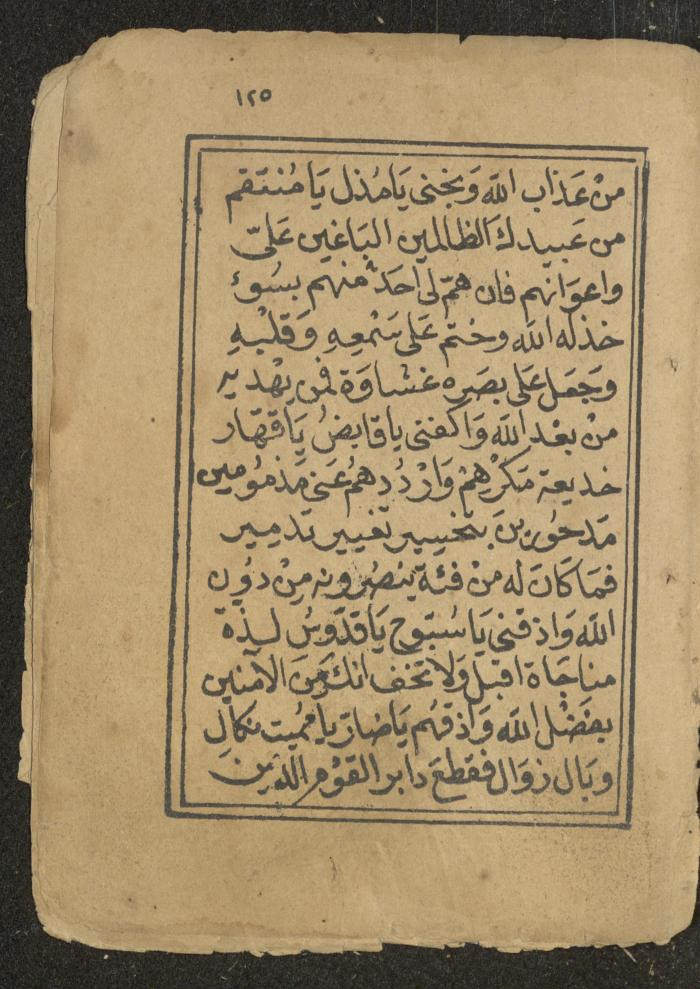 ١٢٥
مِنْ عَذَاب اللّه وَنجنى يَامُذل يَا مُنتَقم
من عَبيدك الظالمين البَاغين عَلَىّ
واعوَانهم فان همّ لى احَدٌ منهم بسُوءٍ
خذله اللّه وختم عَلى سَمْعِهِ وَقَلْبِهِ
وَجَعَل عَلى بصَره غشاوَة فمن يهْديه
منْ بعْد اللّه وَاكفنى ياقابِضُ يَاقهّار
خديعة مَكْرِهِمْ وَارْدُدهمُ عَنى مَذمُومين
مَدحُورينَ بتخسير تغيير تدمير
فمَا كَانَ له منْ فئةٍ ينْصُرونه مِنْ دوُن
اللّه وَاذقنى يَاسُبّوح يَاقدّوسُ لذة
مناجَاة اقبل وَلا تخف انك مَنَ الآمنين
بفَضْل اللّه وَاَذقهُم يَاضارّ يا مُميت نكَال
وبَال زوَال فقطعَ دابر القوْم الذين